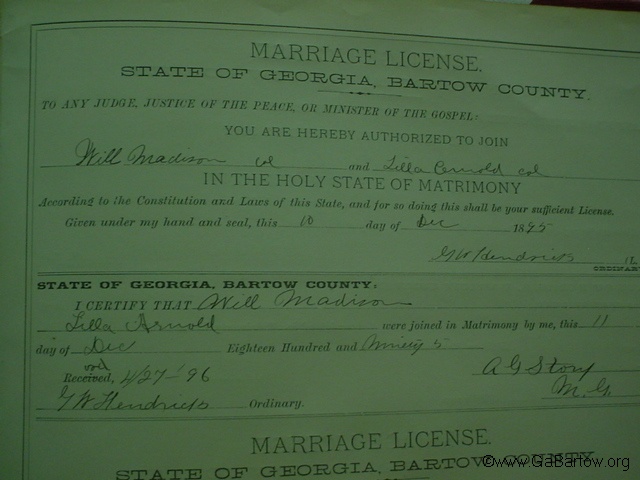 MARRIAGE LICENSE.
STATE OF GEORGIA, BARTOW COUNTY.
TO ANY JUDGE, JUSTICE OF THE PEACE, OR MINISTER OF THE GOSPEL:
YOU ARE HEREBY AUTHORIZED TO JOIN
Will Madison col and Lilla Arnold col
IN THE HOLY STATE OF MATRIMONY
According to the Constitution and Laws of this State, and for so doing this shall be your sufficient License.
Given under my hand and seal, this 10 day of Dec 1895
G W Hendricks
ORDINARY
STATE OF GEORGIA, BARTOW COUNTY:
I CERTIFY THAT Will Madison
Lilla Arnold were joined in Matrimony by me, this 11
day of Dec Eighteen Hundred and Ninety 5
Received, 4/27 '96 A G Story
M. G.
G W Hendricks Ordinary.
MARRIAGE LICENSE.
STATE OF GEORGIA, BARTOW COUNTY.
©www.GaBartow.org